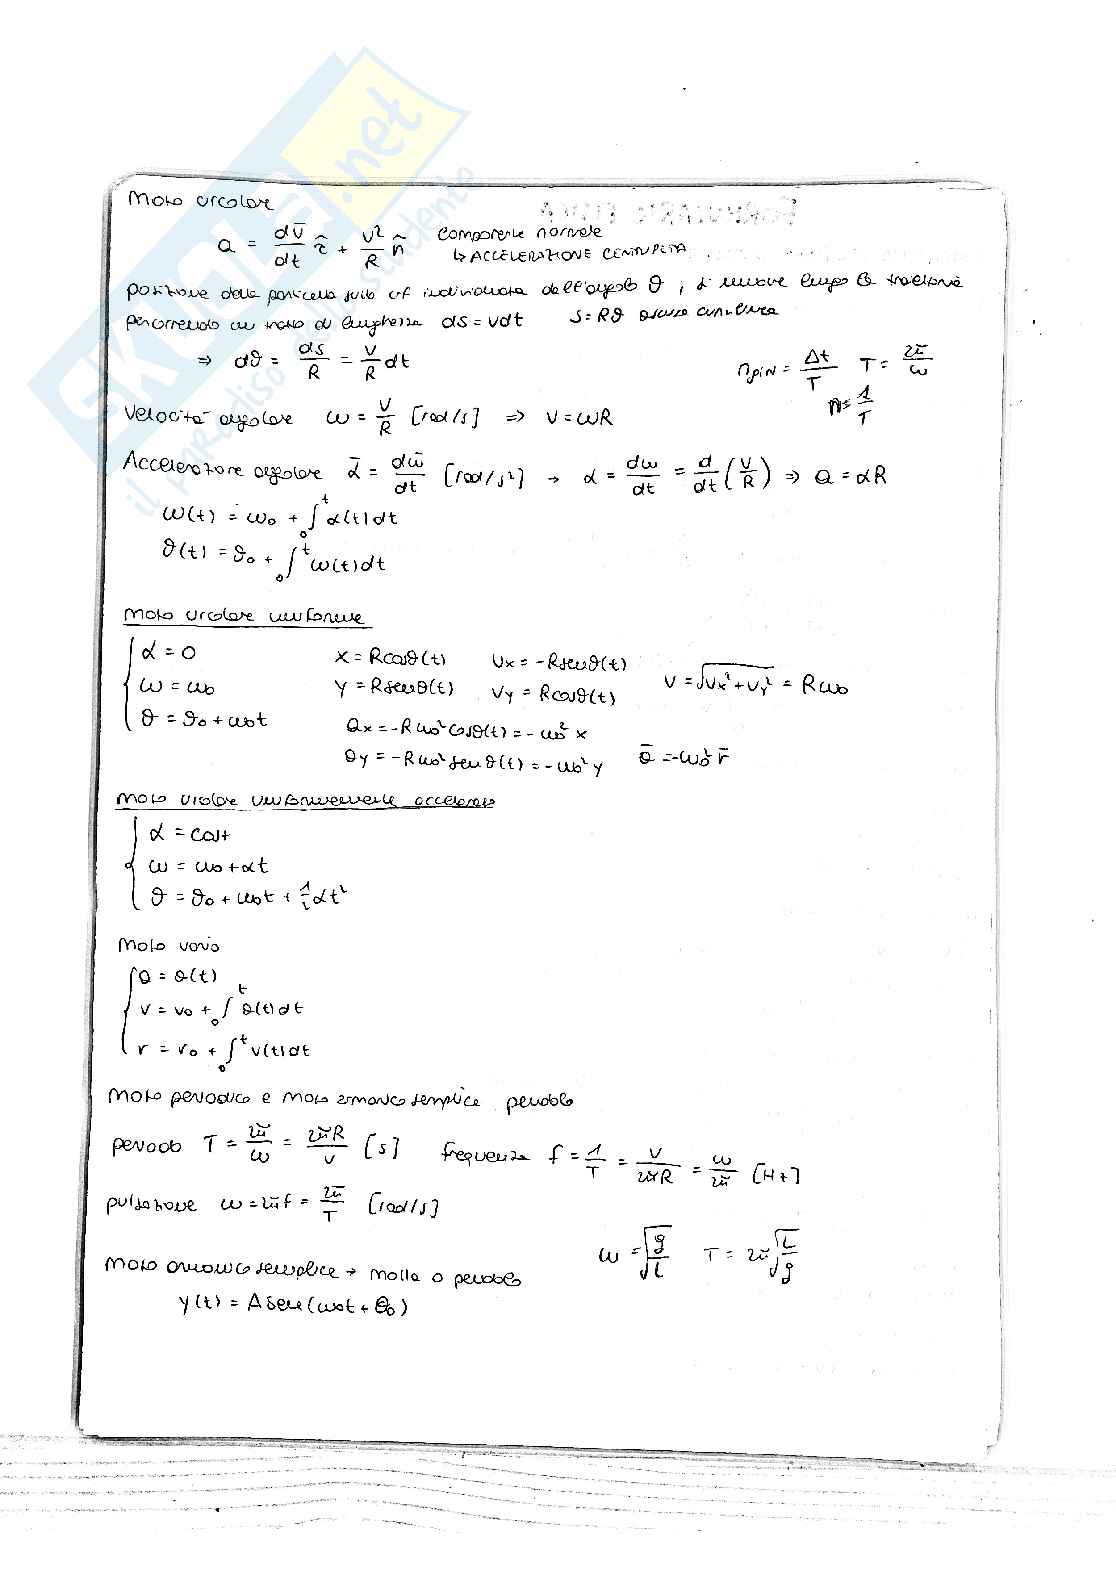 SKUOLA.net
il paradiso dello studente
FORMULARIO FISICA
Moto circolare
a = dv̄/dt τ̂ + v²/R n̂ componente normale
↳ ACCELERAZIONE CENTRIPETA
posizione della particella sulla cf individuata dall'angolo θ ; si muove lungo la traiettoria
percorrendo un tratto di lunghezza ds = vdt S = Rθ ascissa curvilinea
⇒ dθ = ds/R = v/R dt
n giri = Δt/T T = 2π/ω
n = 1/T
Velocità angolare ω = v/R [rad/s] ⇒ v = ωR
Accelerazione angolare ᾱ = dω̄/dt [rad/s²] → α = dω/dt = d/dt (v/R) ⇒ a = αR
ω(t) = ω₀ + ∫₀ᵗ α(t)dt
θ(t) = θ₀ + ∫₀ᵗ ω(t)dt
Moto circolare uniforme
α = 0 x = Rcosθ(t) vx = -Rsenθ(t)
ω = ω₀ y = Rsenθ(t) vy = Rcosθ(t) v = √vx² + vy² = Rω₀
θ = θ₀ + ω₀t ax = -Rω₀²cosθ(t) = -ω₀² x
ay = -Rω₀²senθ(t) = -ω₀² y ā = -ω₀² r̄
Moto circolare uniformemente accelerato
α = cost
ω = ω₀ + αt
θ = θ₀ + ω₀t + 1/2 αt²
Moto vario
a = a(t)
v = v₀ + ∫₀ᵗ a(t)dt
r = r₀ + ∫₀ᵗ v(t)dt
Moto periodico e moto armonico semplice pendolo
periodo T = 2π/ω = 2πR/v [s] frequenza f = 1/T = v/2πR = ω/2π [Hz]
pulsazione ω = 2πf = 2π/T [rad/s]
ω = √g/L T = 2π√L/g
Moto armonico semplice → molla o pendolo
y(t) = Asen(ω₀t + θ₀)